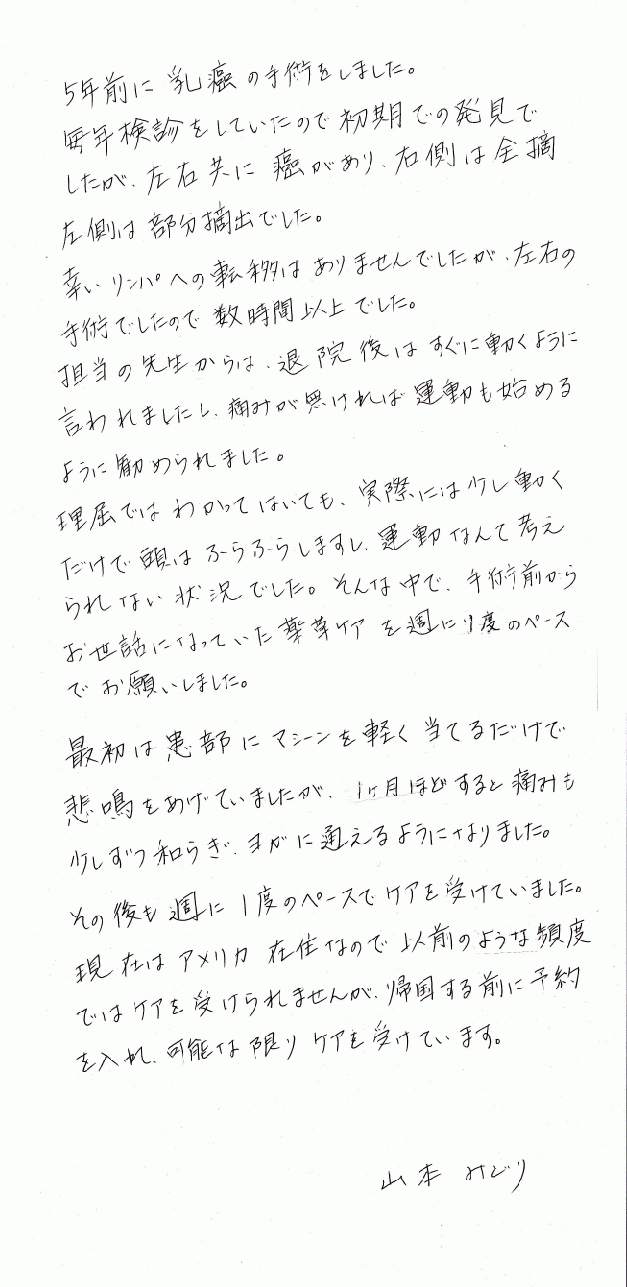 5年前に乳癌の手術をしました。
毎年検診をしていたので初期での発見で
したが、左右共に癌があり、右側は全摘
左側は部分摘出でした。
幸いリンパへの転移はありませんでしたが、左右の
手術でしたので数時間以上でした。
担当の先生からは、退院後はすぐに動くように
言われましたし、痛みが無ければ運動も始める
ように勧められました。
理屈ではわかってはいても、実際には少し動く
だけで頭はふらふらしますし、運動なんて考え
られない状況でした。そんな中で、手術前から
お世話になっていた薬草ケアを週に1度のペース
でお願いしました。
最初は患部にマシーンを軽く当てるだけで
悲鳴をあげていましたが、1ヶ月ほどすると痛みも
少しずつ和らぎ、ヨガに通えるようになりました。
その後も週に1度のペースでケアを受けていました。
現在はアメリカ在住なので以前のような頻度
ではケアを受けられませんが、帰国する前に予約
を入れ、可能な限りケアを受けています。
山本みどり